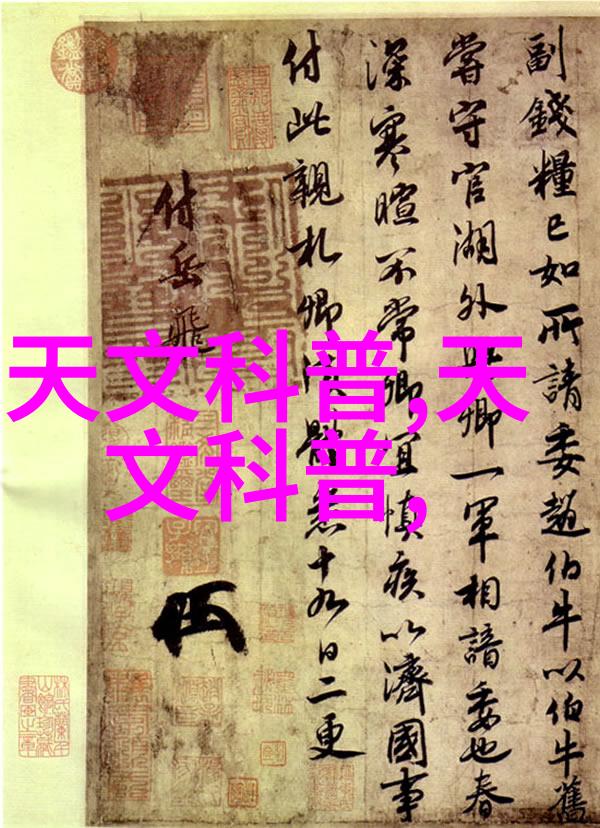 副錢糧已如所請委趙伯牛以伯牛舊
嘗守官湖外與卿一軍相諳委也春
深寒暄不常卿宜慎疾以濟國事
付此親札卿須體悉十九日二更
付岳飛
天文科普,天
文科普,